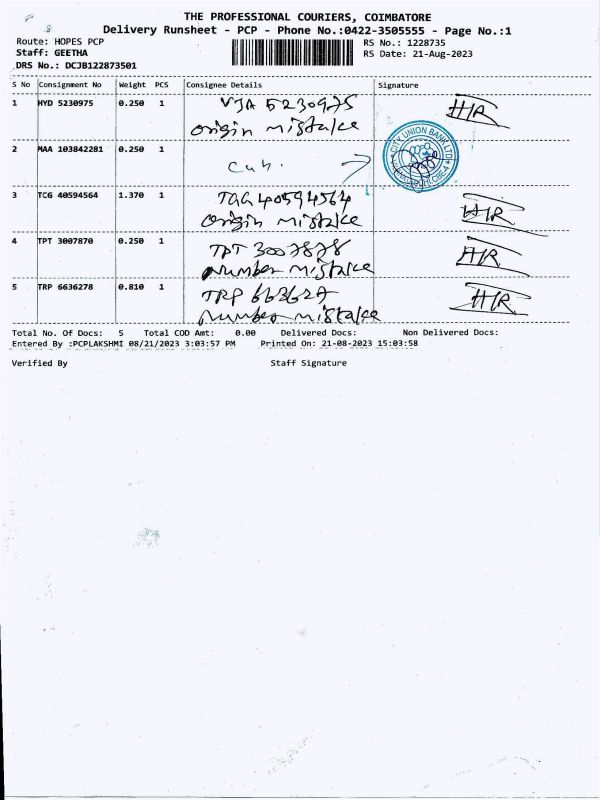 THE PROFESSIONAL COURIERS, COIMBATORE
Delivery Runsheet - PCP - Phone No.:0422-3505555 - Page No.:1
Route: HOPES PCP
RS No.: 1228735
Staff: GEETHA
RS Date: 21-Aug-2023
DRS No.: DCJB122873501
S No Consignment No Weight PCS Consignee Details Signature
1 HYD 5230975 0.250 1 VJA 5230975 HR
origin mistake
2 MAA 103842281 0.250 1 Cub. CITY UNION BANK LTD
3 TCG 40594564 1.370 1 TGG 40594564
origin mistake HR
4 TPT 3007870 0.250 1 TPT 3007878 HR
number mistake
5 TRP 6636278 0.810 1 TRP 663627 HR
number mistake
Total No. Of Docs: 5 Total COD Amt: 0.00 Delivered Docs: Non Delivered Docs:
Entered By :PCPLAKSHMI 08/21/2023 3:03:57 PM Printed On: 21-08-2023 15:03:58
Verified By Staff Signature